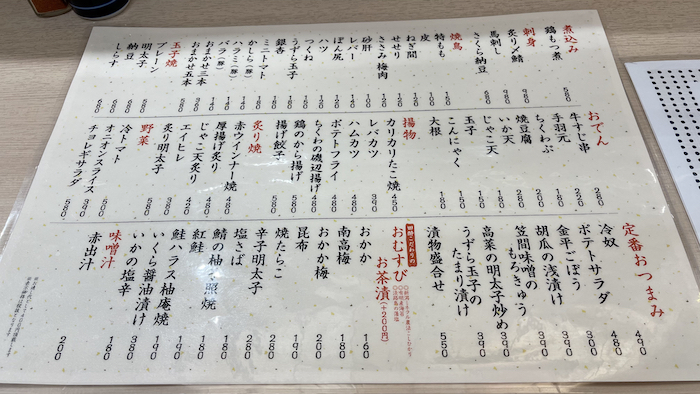 煮込み
鶏もつ煮 580
刺身
炙り〆鯖 980
馬刺し 980
さくら納豆 680
焼鳥
特もも 150
皮
ねぎ間
せせり
ささみ梅肉
砂肝
レバー
ぼん尻
ハツ
つくね
うずら玉子
銀杏
ミニトマト
かしら(豚)
ハラミ(豚)
バラ(豚)
おまかせ三本
おまかせ五本
玉子焼
プレーン
明太子
納豆
しらす
おでん
牛すじ串 280
手羽元 220
ちくわぶ 200
焼豆腐
いか天
じゃこ天
玉子 150
こんにゃく 150
大根 180
揚物
カリカリたこ焼 450
レバカツ 390
ハムカツ 480
ポテトフライ 480
ちくわの磯辺揚げ 480
鶏のから揚げ 580
揚げ餃子
炙り焼
赤ウインナー焼 480
厚揚げ炙り 380
じゃこ天炙り 480
エイヒレ 420
炙り明太子 380
野菜
冷トマト 500
オニオンスライス 390
チョレギサラダ 580
定番おつまみ
冷奴 490
ポテトサラダ 480
金平ごぼう 300
胡瓜の浅漬け 480
笠間味噌の
もろきゅう 390
高菜の明太子炒め 390
うずら玉子の
たまり漬け 390
漬物盛合せ 550
おむすび
お茶漬(+200円)
おかか 160
南高梅 180
おかか梅 200
昆布 190
焼たらこ 280
辛子明太子 280
塩さば 180
鯖の柚庵照焼 180
紅鮭 180
鮭ハラス柚庵焼 190
いくら醤油漬け 380
いかの塩辛 190
味噌汁
赤出汁 200